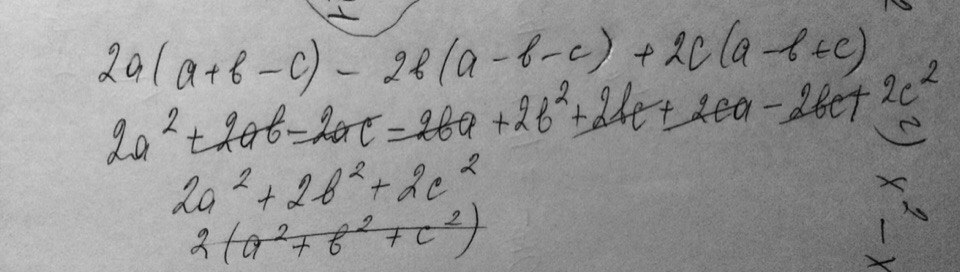 2a(a+b-c) - 2b(a-b-c) + 2c(a-b+c)
2a² + 2ab - 2ac - 2ba + 2b² + 2bc + 2ca - 2bc + 2c²
2a² + 2b² + 2c²
2(a² + b² + c²)
2) x² - x